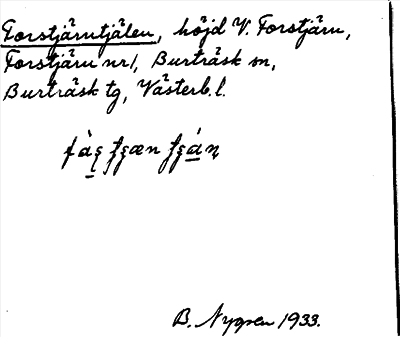 Forstjärntjälen, höjd V. Forstjärn,
Forstjärn nr 1, Burträsk sn,
Burträsk tg, Västerb. l.
B. Nygren 1933.